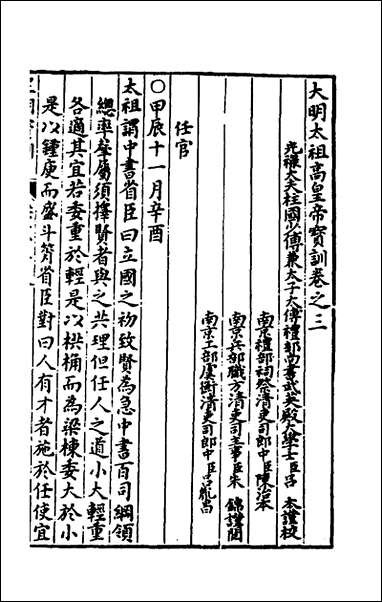 大明太祖高皇帝寶訓卷之三
光祿大夫柱國少傅兼太子太傅禮部尚書武英殿大學士臣呂 本謹校
南京禮部祠祭清吏司郎中臣陳治本
南京兵部職方清吏司主事臣朱 錦謹閱
南京工部虞衡清吏司郎中臣呂胤昌
任官
○甲辰十一月辛酉
太祖謂中書省臣曰立國之初致賢為急中書百司綱領
總率羣屬須擇賢者與之共理但任人之道小大輕重
各適其宜若委重於輕是以拱桷而為梁棟委大於小
是以鍾庾而盛斗筲省臣對曰人有才者施於任使宜